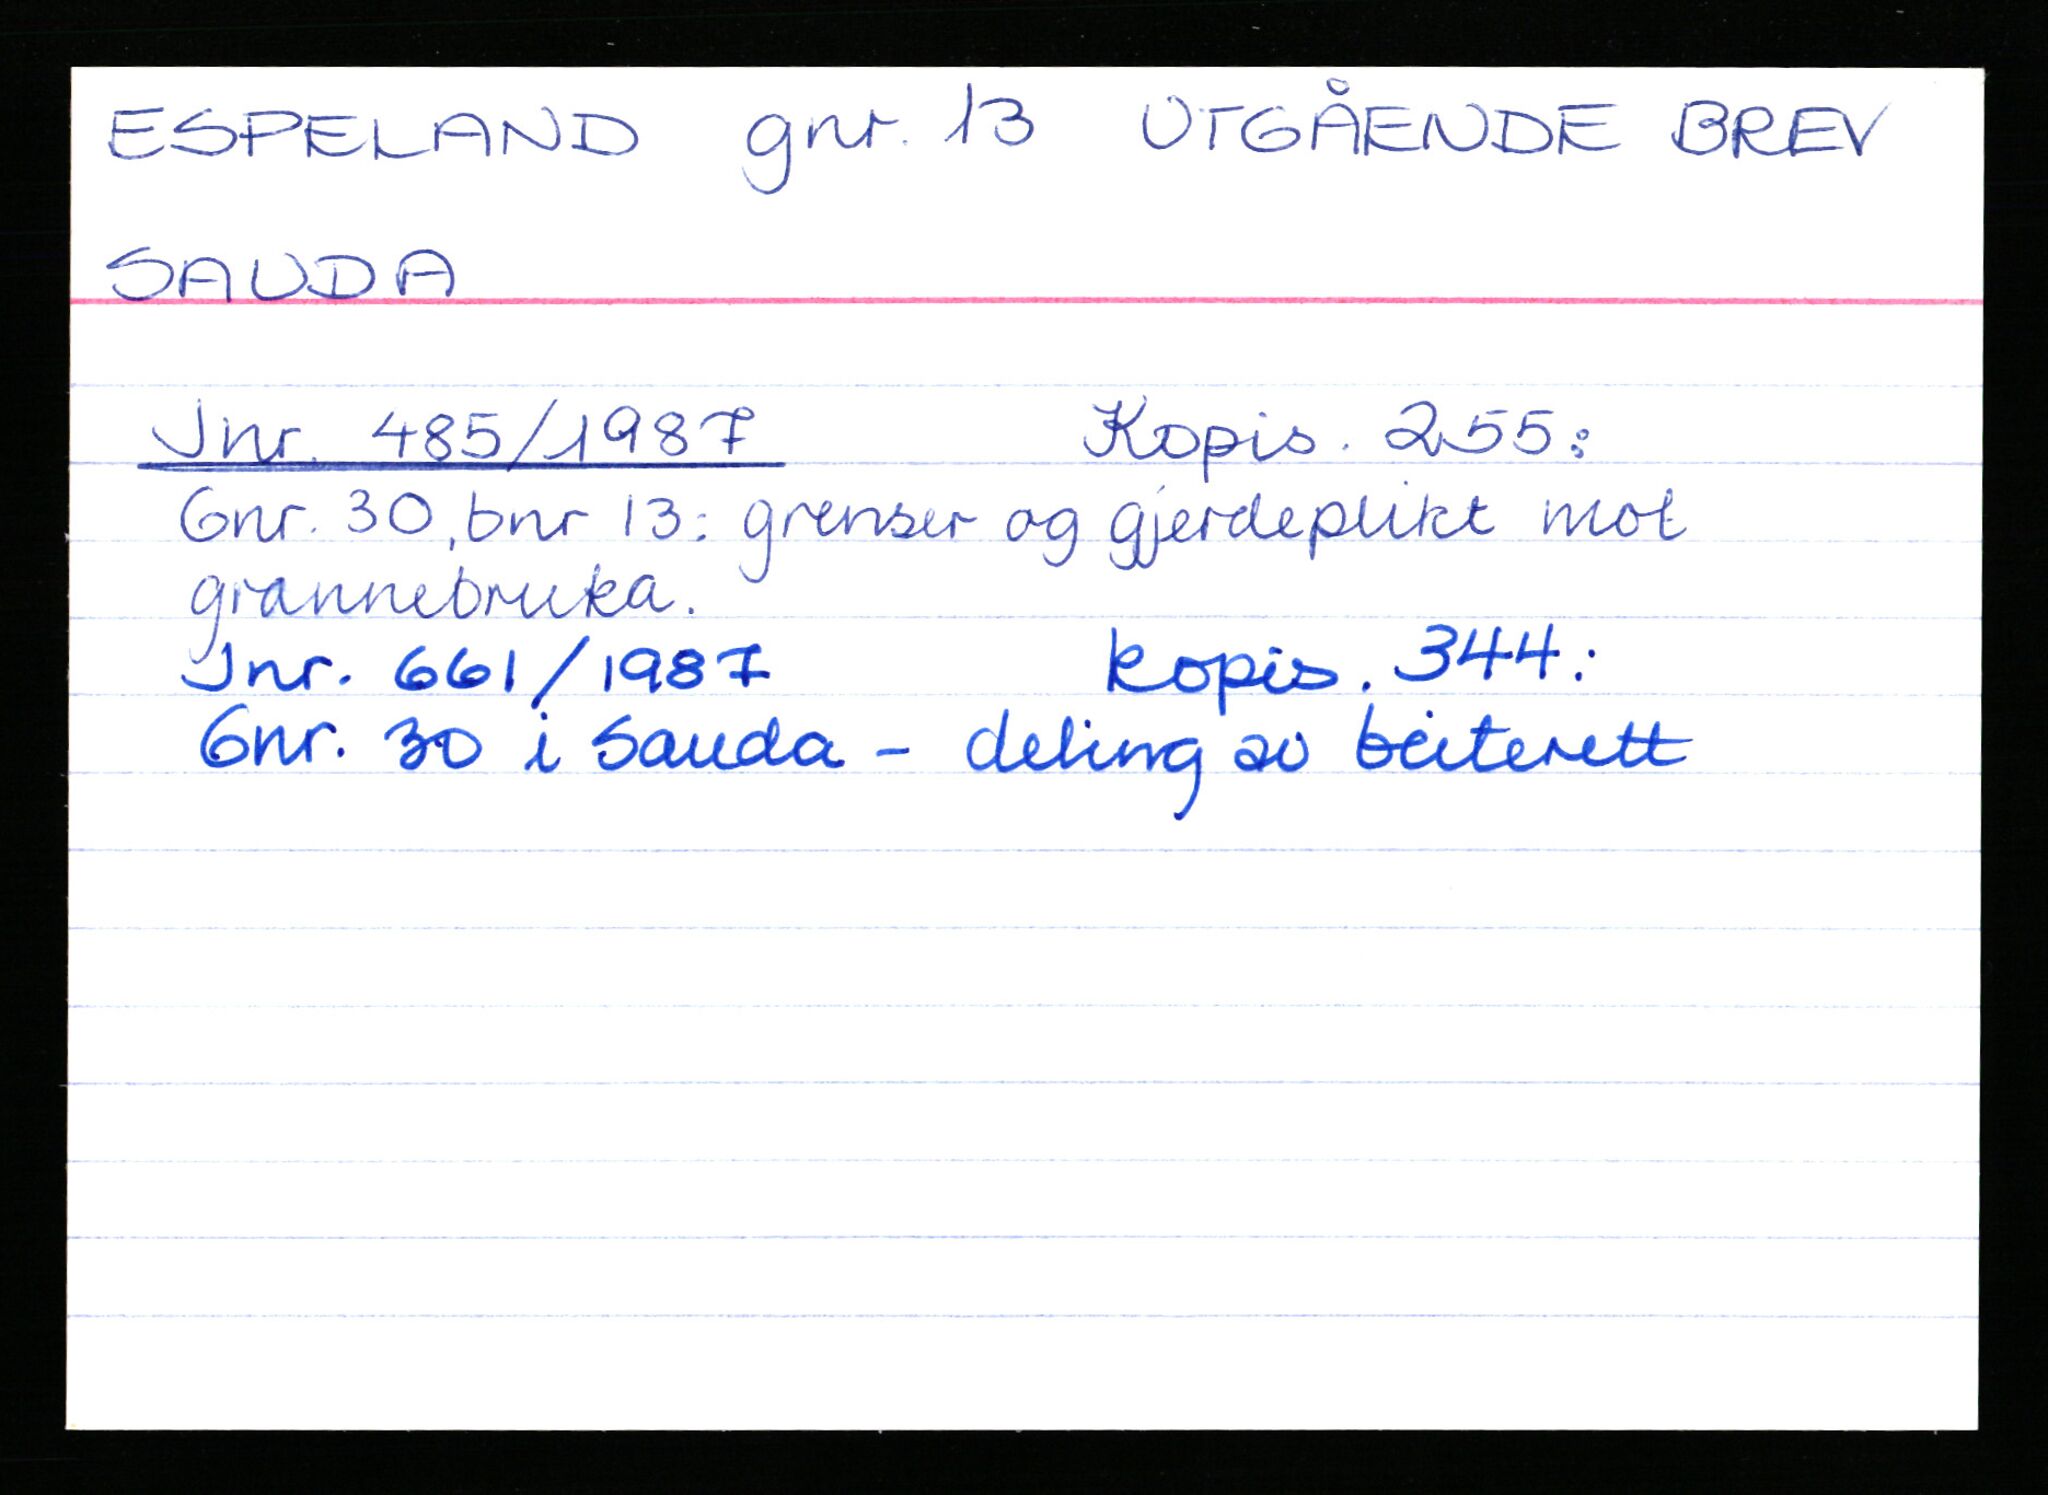 ESPELAND gnr. 13 UTGÅENDE BREV
SAUDA
Jnr. 485/1987 Kopis. 255:
Gnr. 30, bnr 13: grenser og gjerdeplikt mot
grannebruka.
Jnr. 661/1987 kopis. 344:
Gnr. 30 i Sauda - deling av beiterett